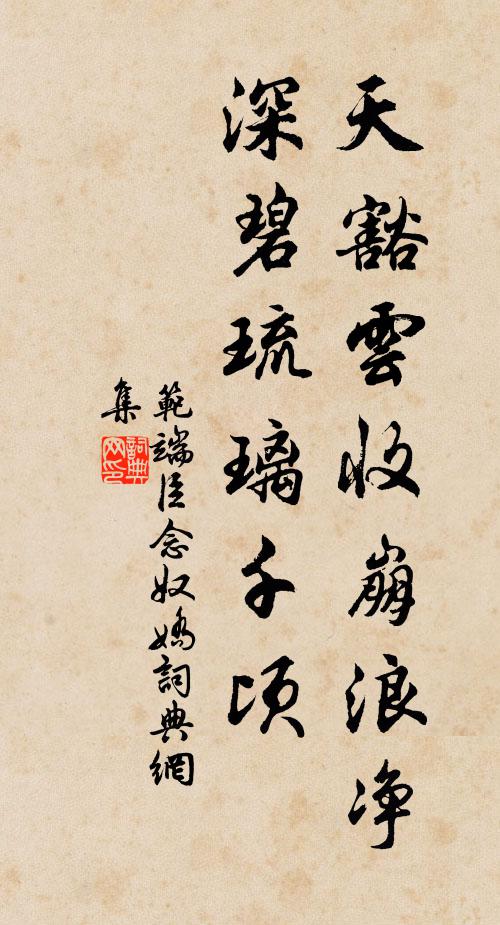 天豁雲收崩浪净
深碧琉璃千頃
範端臣念奴嬌詞典網
集
詞典
网印